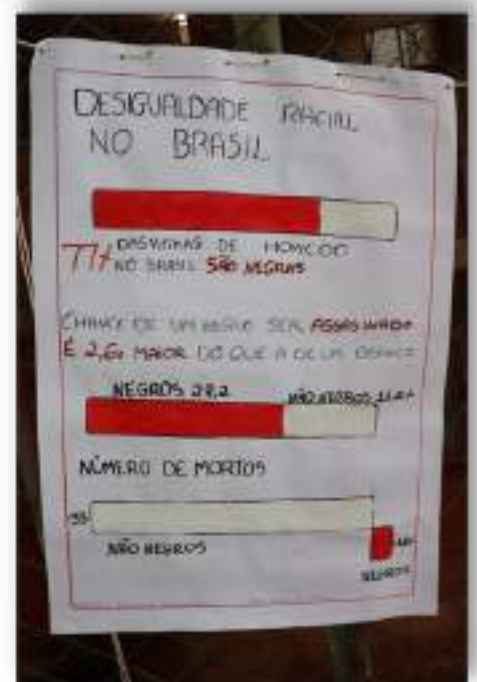 DESIGUALDADE RACIAL
NO BRASIL
77% DAS VÍTIMAS DE
NO BRASIL SÃO NEGRAS
CHANCE DE UM NEGRO SER ASSASSINADO
É 2,6x MAIOR DO QUE A DE UM BRANCO
NEGROS 29,2 NÃO NEGROS
NÚMERO DE MORTOS
NÃO NEGROS
NEGROS